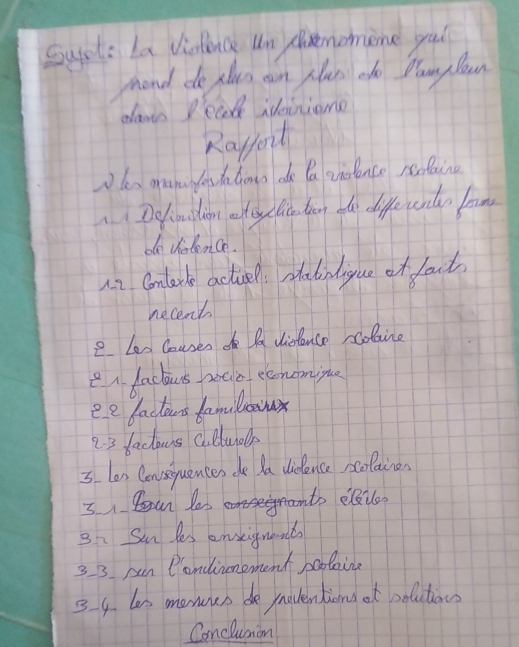 Sujet : La Violence un phenomène qui
prend de plus en plus de l'ampleur
dans l'école ivoirienne
Rapport
1) les manifestations de la violence scolaire
1.1 Definition et explication de differentes forme
de violence.
1.2 Contexte actuel : statistique et faits
recents
2. Les Causes de la violence scolaire
2.1. facteurs socio-économique
2.2 facteurs familiaux
2.3 facteurs Culturels
3. Les Conséquences de la violence scolaires
3.1. les élèves
3.2 Sur les enseignants
3.3 sur l'environement scolaire
3.4. les mesures de preventions et solutions
Conclusion